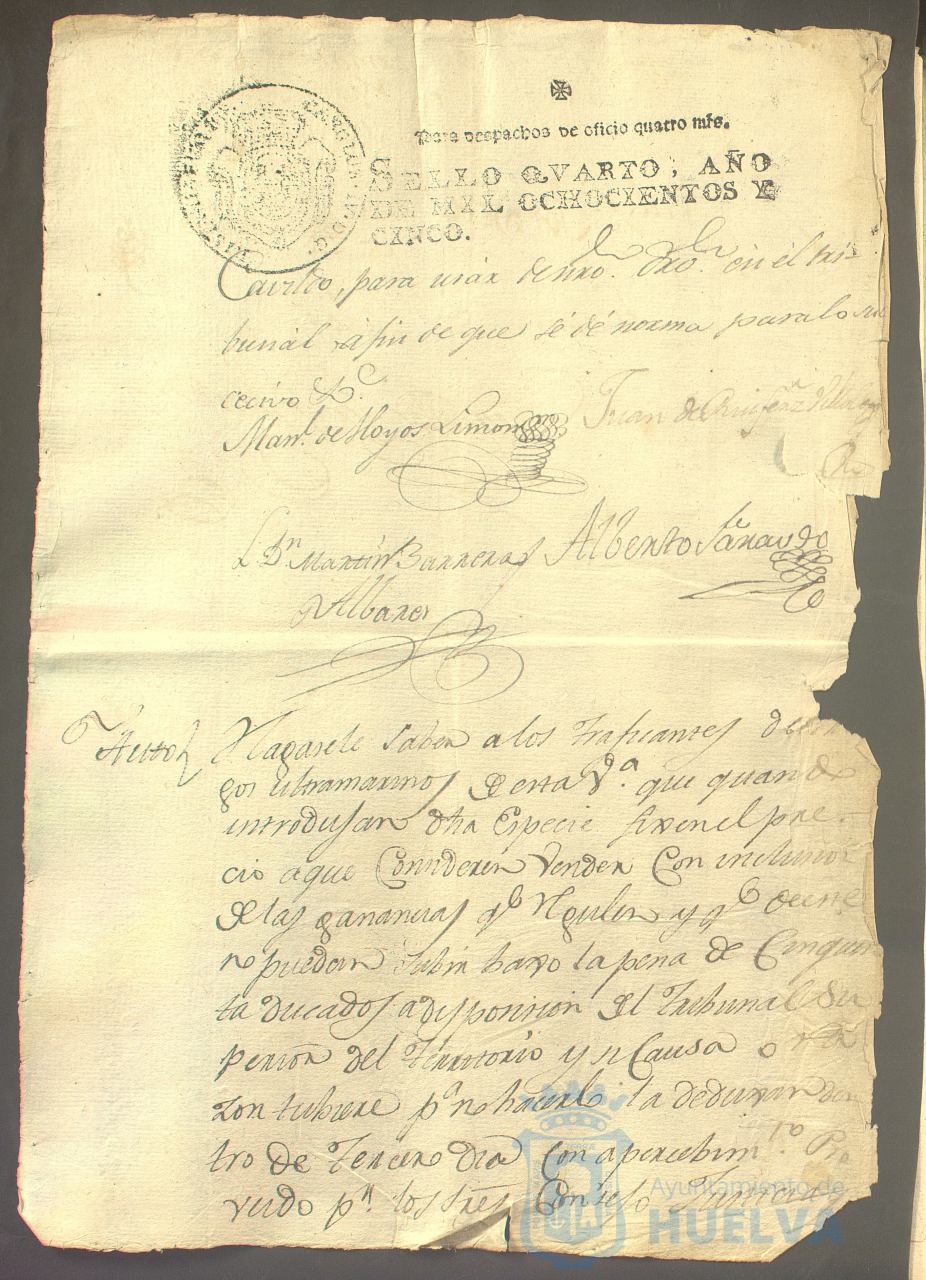 Para despachos de oficio quatro mrs.
SELLO QVARTO, AÑO
DE MIL OCHOCIENTOS Y
CINCO.
Cavildo, para usar de nro. dro. en él tri
bunál a fin de que sé dé norma para lo su
cecivo &c.
Manl. de Hoyos Limon
Juan de
Ldn Martin Barreras
Alberto
Albarez
Auto
Hagasele saber a los trafícantes de
gos ultramarinos de esta Va. que quando
introdusan dha especie fixen el pre
cio a que Concideren vender Con inclusion
de las ganancias qe regulen y qe de ese
no puedan subir baxo la pena de Cinquen
ta ducados a disposicion del Tribunal Su
perior del Territorio y si Causa o ra
zon tubiere pa no hacerlo la deduscan den
tro de Tercero dia Con apercebimto. Pro
veido pr. los Sres Consejo
Ayuntamiento de
HUELVA